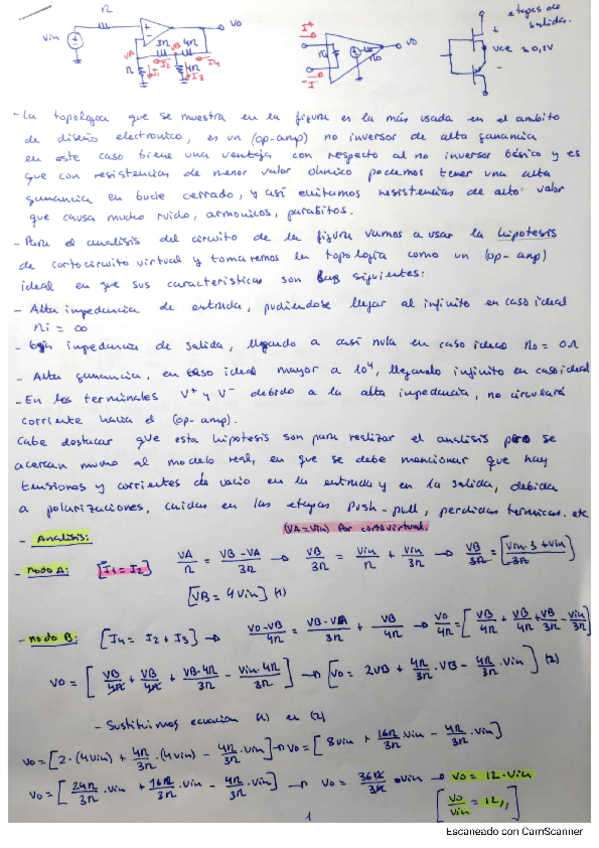 R
Vin
VO
3R
4R
VA
VB
R
4R
I1
I2
I3
I4
I+
I-
Ri
Ro
VO
etapas de
salida.
+
VCE ≈ 0,1V
-
- La topologia que se muestra en la figura es la más usada en el ambito
de diseño electronico, es un (op-amp) no inversor de alta ganancia
en este caso tiene una ventaja con respecto al no inversor básico y es
que con resistencias de menor valor ohmico podemos tener una alta
ganancia en bucle cerrado, y así evitamos resistencias de alto valor
que causa mucho ruido, armonicos, parasitos.
- Para el analisis del circuito de la figura vamos a usar la hipotesis
de cortocircuito virtual y tomaremos la topologia como un (op-amp)
ideal en que sus caracteristicas son las siguientes:
- Alta impedancia de entrada, pudiendose llegar al infinito en caso ideal
Ri = ∞
- baja impedancia de salida, llegando a casi nula en caso ideal Ro = 0Ω
- Alta ganancia, en caso ideal mayor a 10⁴, llegando infinito en caso ideal
- En los terminales V+ y V- debido a la alta impedancia, no circulará
corriente hacia el (op-amp).
Cabe destacar que esta hipotesis son para realizar el analisis pero se
acercan mucho al modelo real, en que se debe mencionar que hay
tensiones y corrientes de vacio en la entrada y en la salida, debida
a polarizaciones, caidas en las etapas Push-pull, perdidas termicas. etc
(VA=Vin) Por cortovirtual.
- Analisis:
- nodo A: [I1 = I2] VA/R = VB-VA/3R → VB/3R = Vin/R + Vin/3R → VB/3R = [Vin·3+Vin/3R]
[VB = 4Vin] (1)
- nodo B: [I4 = I2 + I3] → VO-VB/4R = VB-VA/3R + VB/4R → VO/4R = [VB/4R + VB/4R + VB/3R - Vin/3R]
VO = [VB/4R + VB/4R + VB·4R/3R - Vin·4R/3R] → [VO = 2VB + 4R/3R·VB - 4R/3R·Vin] (2)
- Sustituimos ecuacion (1) en (2)
VO = [2·(4Vin) + 4R/3R·(4Vin) - 4R/3R·Vin] → VO = [8Vin + 16R/3R·Vin - 4R/3R·Vin]
VO = [24R/3R·Vin + 16R/3R·Vin - 4R/3R·Vin] → VO = 36R/3R·Vin → VO = 12·Vin
[VO/Vin = 12,,]
1
Escaneado con CamScanner